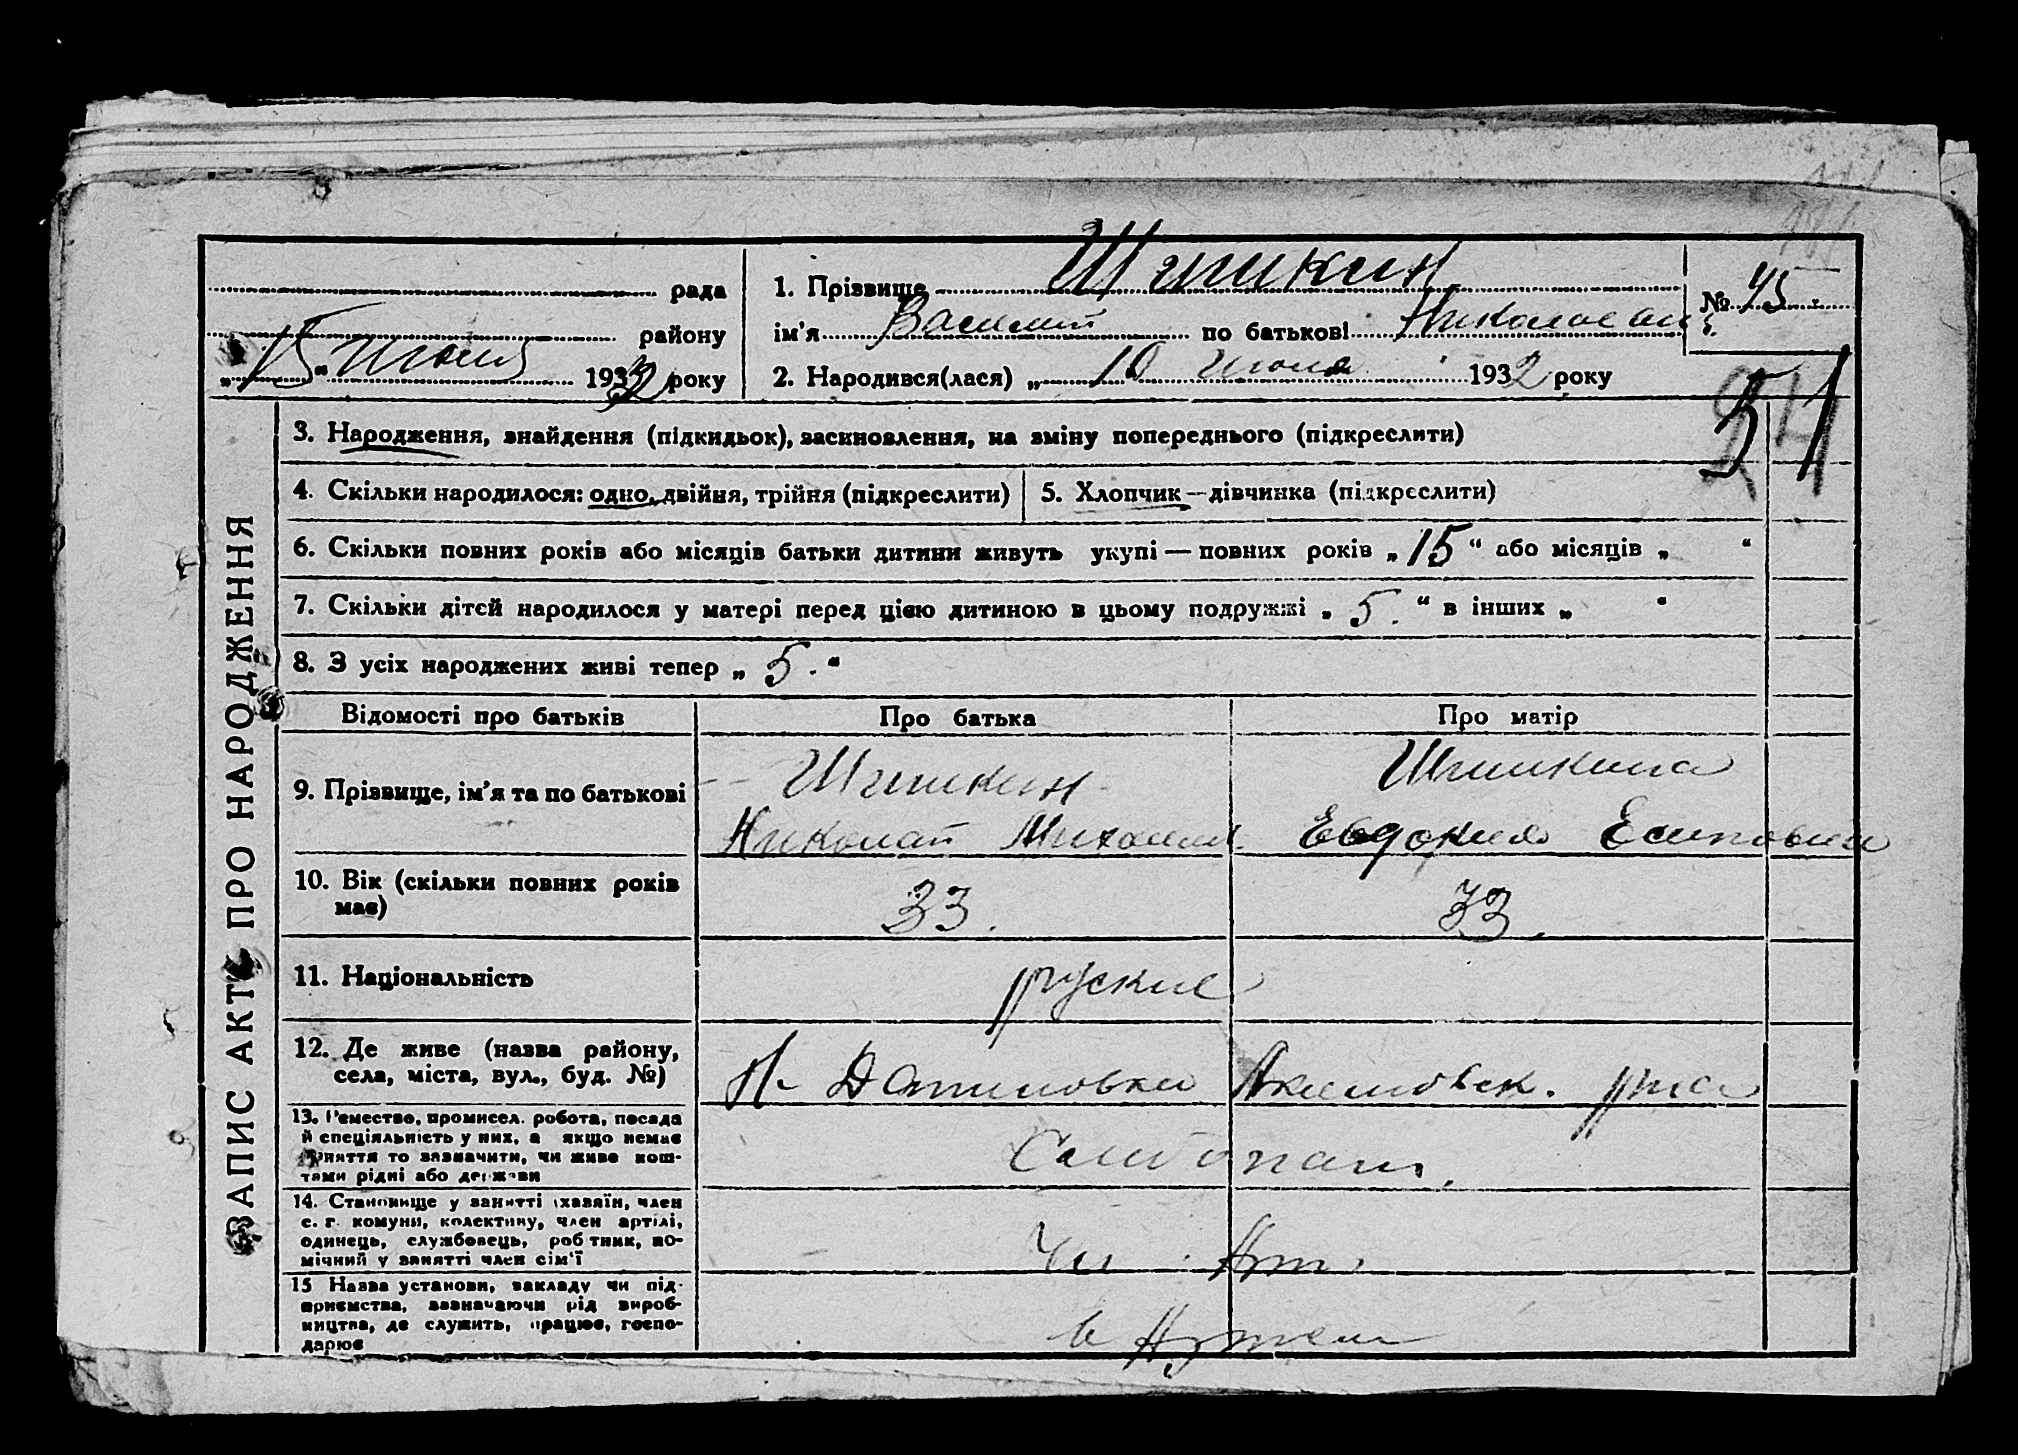 рада
району
„15“ Июня 1932 року
1. Прізвище Шишкин
ім'я Василий по батькові
2. Народився(лася) „10 Июня 1932 року
№ 45
51
ЗАПИС АКТУ ПРО НАРОДЖЕННЯ
3. Народження, знайдення (підкидьок), засиновлення, на зміну попереднього (підкреслити)
4. Скільки народилося: одно, двійня, трійня (підкреслити)
5. Хлопчик — дівчинка (підкреслити)
6. Скільки повних років або місяців батьки дитини живуть укупі — повних років „15“ або місяців „ “
7. Скільки дітей народилося у матері перед цією дитиною в цьому подружжі „5.“ в інших „ “
8. З усіх народжених живі тепер „5.“
Відомості про батьків
Про батька
Про матір
9. Прізвище, ім'я та по батькові
Шишкин
Николай
Шишкина
Евдокия
10. Вік (скільки повних років
має)
33.
33.
11. Національність
руские
12. Де живе (назва району,
села, міста, вул., буд. №)
13. Ремество, промисел, робота, посада
й спеціяльність у них, а якщо немає
заняття то зазначити, чи живе кош-
тами рідні або держави
14. Становище у занятті (хазяїн, член
с. г. комуни, колективу, член артілі,
одинець, службовець, робітник, по-
мічний у занятті член сім'ї
15 Назва установи, закладу чи під-
приємства, зазначаючи рід вироб-
ництва, де служить, працює, госпо-
дарює